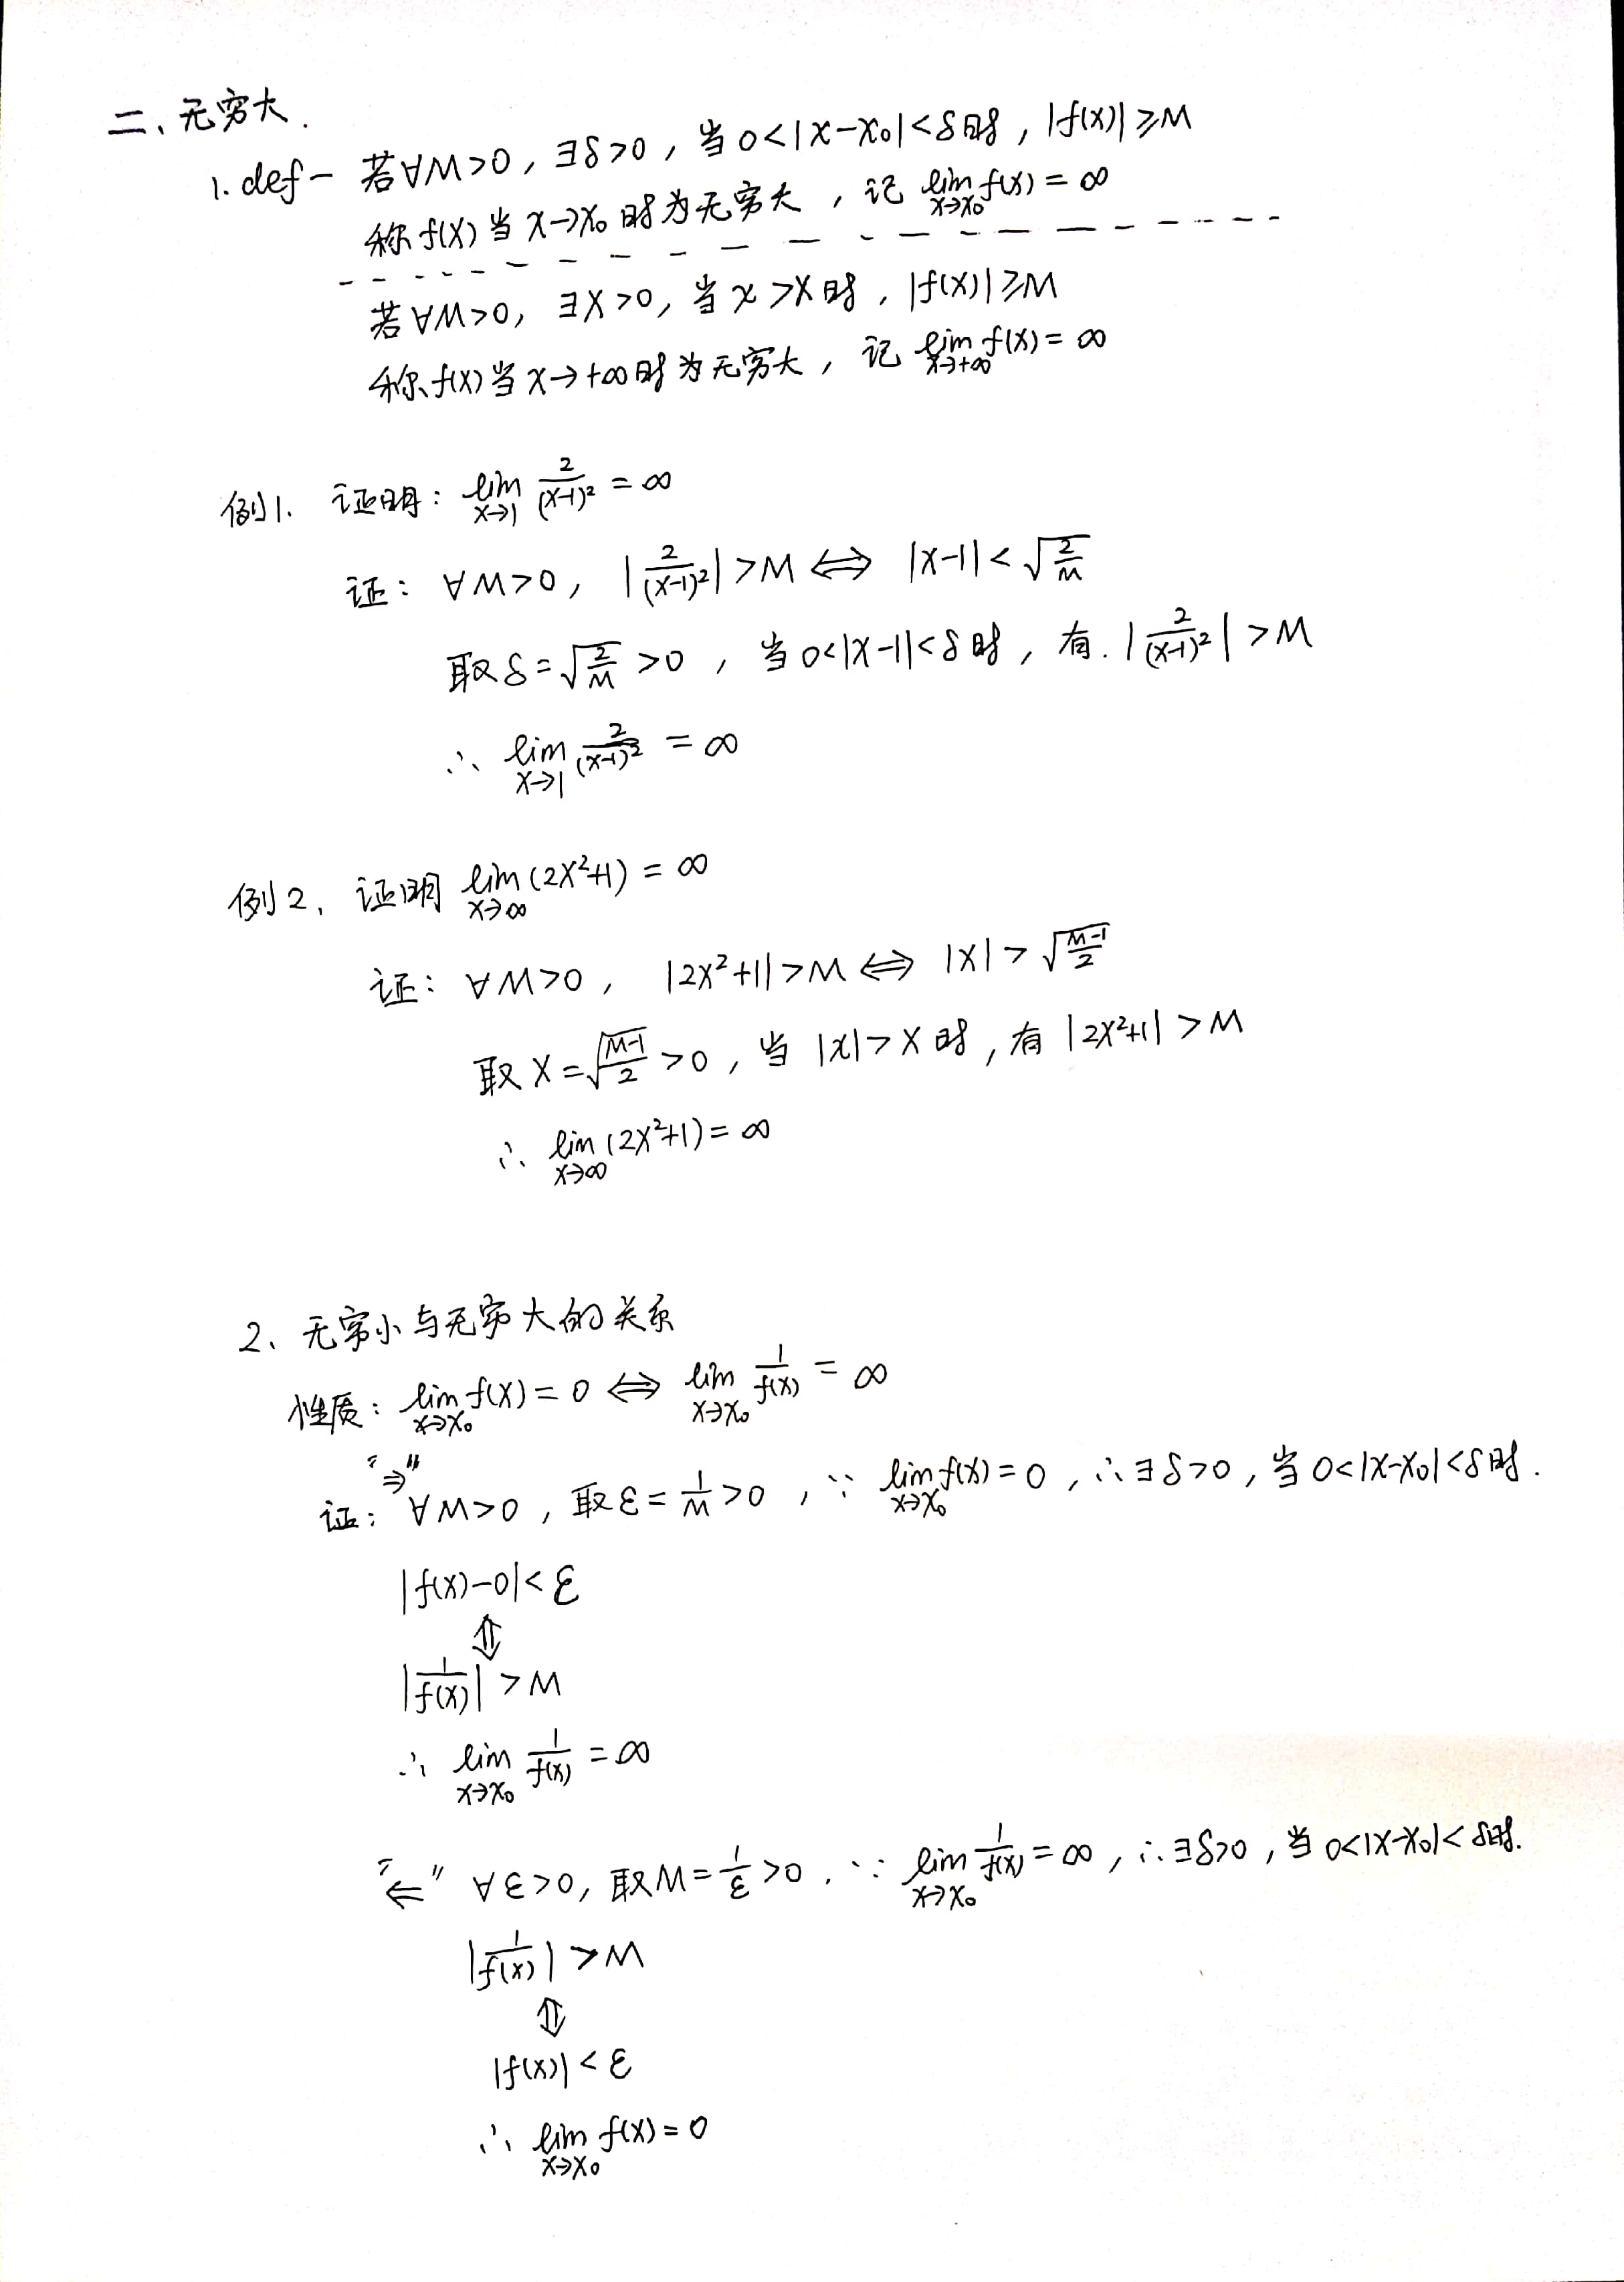 二、无穷大.
1. def - 若∀M>0, ∃δ>0, 当0<|x-x₀|<δ时, |f(x)|≥M
称f(x)当x→x₀时为无穷大, 记 lim_{x→x₀} f(x)=∞
若∀M>0, ∃X>0, 当x>X时, |f(x)|≥M
称f(x)当x→+∞时为无穷大, 记 lim_{x→+∞} f(x)=∞
例1. 证明: lim_{x→1} 2/(x-1)² = ∞
证: ∀M>0, |2/(x-1)²|>M ⇔ |x-1|<√(2/M)
取δ=√(2/M)>0, 当0<|x-1|<δ时, 有.|2/(x-1)²|>M
∴ lim_{x→1} 2/(x-1)² = ∞
例2, 证明 lim_{x→∞} (2x²+1) = ∞
证: ∀M>0, |2x²+1|>M ⇔ |x|>√((M-1)/2)
取X=√((M-1)/2)>0, 当|x|>X时, 有|2x²+1|>M
∴ lim_{x→∞} (2x²+1)=∞
2、无穷小与无穷大的关系
性质: lim_{x→x₀} f(x)=0 ⇔ lim_{x→x₀} 1/f(x) = ∞
"⇒"
证: ∀M>0, 取ε=1/M>0, ∵ lim_{x→x₀} f(x)=0, ∴∃δ>0, 当0<|x-x₀|<δ时.
|f(x)-0|<ε
⇕
|1/f(x)|>M
∴ lim_{x→x₀} 1/f(x) = ∞
"⇐" ∀ε>0, 取M=1/ε>0, ∵ lim_{x→x₀} 1/f(x) = ∞, ∴∃δ>0, 当0<|x-x₀|<δ时.
|1/f(x)|>M
⇕
|f(x)|<ε
∴ lim_{x→x₀} f(x)=0